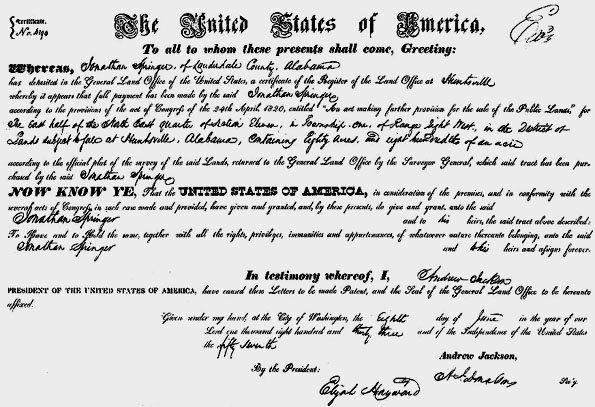 Certificate.
No.
The United States of America,
To all to whom these presents shall come, Greeting:
Whereas, Jonathan Springer, of Lauderdale County, Alabama
has deposited in the General Land Office of the United States, a certificate of the Register of the Land Office at Huntsville
whereby it appears that full payment has been made by the said Jonathan Springer
according to the provisions of the act of Congress of the 24th April, 1820, entitled "An act making further provision for the sale of the Public Lands," for
The East half of the South East quarter of Section Eleven, in Township one, of Range Eight West, in the District of
Lands subject to sale at Huntsville, Alabama, Containing Eighty acres, and eight hundredths of an acre
according to the official plat of the survey of the said Lands, returned to the General Land Office by the Surveyor General, which said tract has been pur-
chased by the said Jonathan Springer
NOW KNOW YE, That the UNITED STATES OF AMERICA, in consideration of the premises, and in conformity with the
several acts of Congress, in such case made and provided, have given and granted, and, by these presents, do give and grant, unto the said
Jonathan Springer and to his heirs, the said tract above described;
To Have and to Hold the same, together with all the rights, privileges, immunities and appurtenances, of whatsoever nature thereunto belonging, unto the said
Jonathan Springer and to his heirs and assigns forever.
In testimony whereof, I, Andrew Jackson
PRESIDENT OF THE UNITED STATES OF AMERICA, have caused these Letters to be made Patent, and the Seal of the General Land Office to be hereunto
affixed.
Given under my hand, at the City of Washington, the eighth day of June in the year of our
Lord one thousand eight hundred and thirty three and of the Independence of the United States
the fifty seventh
Andrew Jackson,
By the President:
A. J. Donelson Sec'y.
Elijah Hayward